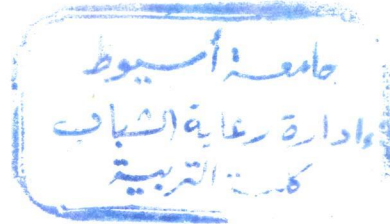 جامعة أسيوط
إدارة رعاية الشباب
كلية التربية